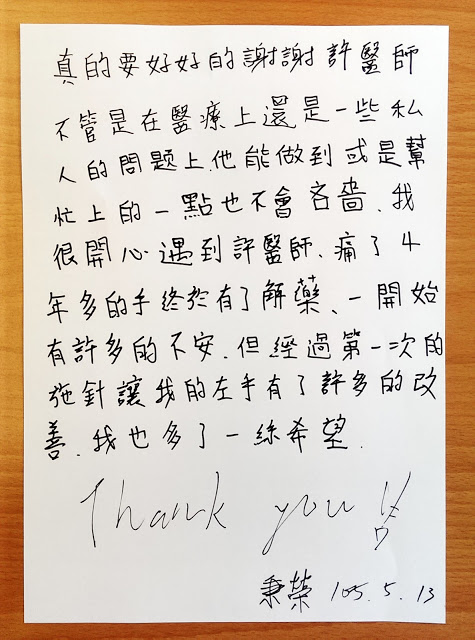 真的要好好的謝謝許醫師
不管是在醫療上還是一些私
人的問題上.他能做到或是幫
忙上的一點也不會吝嗇.我
很開心遇到許醫師.痛了4
年多的手終於有了解藥、一開始
有許多的不安.但經過第一次的
施針讓我的左手有了許多的改
善.我也多了一絲希望.
Thank you !!
秉榮 105.5.13